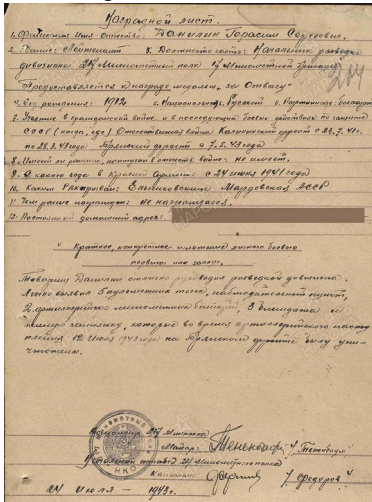 Наградной лист.
1. Фамилия Имя Отчество: Данилин Герасим Сидорович.
2. Звание: Лейтенант 3. Должность часть: Начальник разведки
дивизиона 214 Минометный полк 17 Минометной бригады
Представляется к награде медаль „за Отвагу“
4. Год рождения: 1912 5. Национальность: Русский 6. Партийность: беспарт.
7. Участие в гражданской войне и в последующих боевых действиях по защите
СССР (когда, где) Отечественная война Калининский фронт с 24.7.41г.
по 28.3.43 года Брянский фронт с 7.5.43 года
8. Имеет ли ранения, контузии в отечеств. войне: не имеет.
9. С какого года в Красной Армии: с 24 июня 1941 года
10. Каким Рвк призван: Ельниковским Мордовская АССР
11. Чем ранее награжден: не награждался.
12. Постоянный домашний адрес:
Краткое, конкретное изложение личного боевого
подвига или заслуг.
Товарищ Данилин отлично руководил разведкой дивизиона.
Лично выявил 5 пулеметных точек, наблюдательный пункт,
2 артиллерийско минометных батарей, 3 блиндажа и
живую землянку, которые во время артиллерийского наступ
ления 12 июля 1943 года на Брянском фронте были уни-
чтожены.
Командир 214 Минполка
Майор
Начальник штаба 214 Минометного полка
Капитан /Федоров/
24 июля – 1943 г.